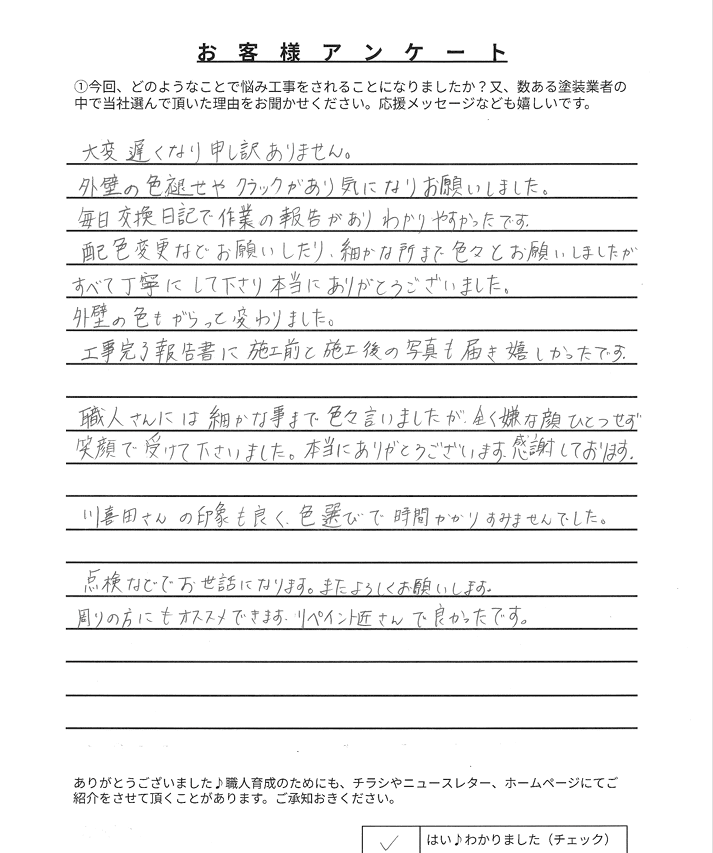 お客様アンケート
①今回、どのようなことで悩み工事をされることになりましたか？又、数ある塗装業者の
中で当社選んで頂いた理由をお聞かせください。応援メッセージなども嬉しいです。
大変遅くなり申し訳ありません。
外壁の色褪せやクラックがあり気になりお願いしました。
毎日交換日記で作業の報告がありわかりやすかったです。
配色変更などお願いしたり、細かな所まで色々とお願いしましたが
すべて丁寧にして下さり本当にありがとうございました。
外壁の色もがらっと変わりました。
工事完了報告書に施工前と施工後の写真も届き嬉しかったです。
職人さんには細かな事まで色々言いましたが、全く嫌な顔ひとつせず
笑顔で受けて下さいました。本当にありがとうございます。感謝しております。
川喜田さんの印象も良く、色選びで時間かかりすみませんでした。
点検などでお世話になります。またよろしくお願いします。
周りの方にもオススメできます。リペイント匠さんで良かったです。
ありがとうございました♪職人育成のためにも、チラシやニュースレター、ホームページにてご
紹介をさせて頂くことがあります。ご承知おきください。
✓ はい♪わかりました（チェック）